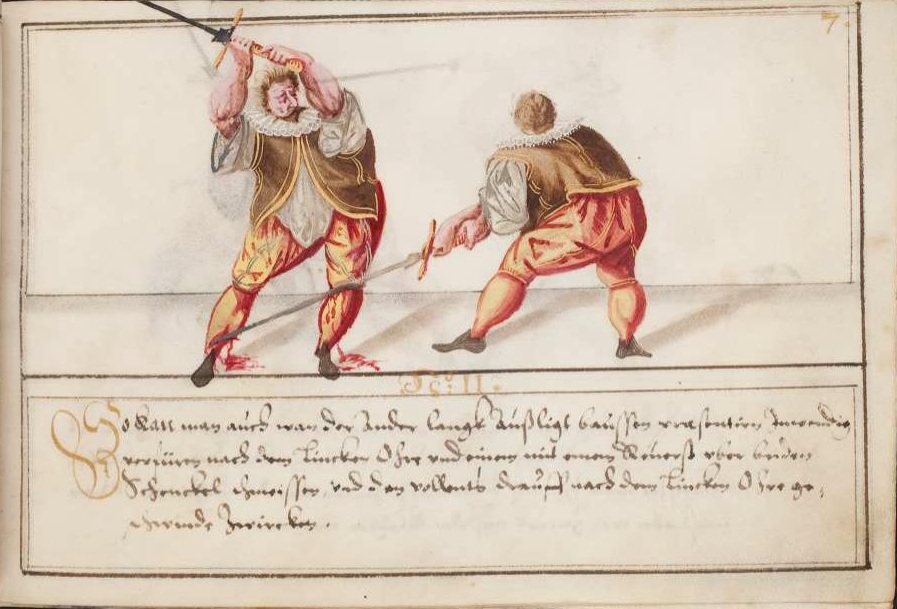 7.
No: 11.
So kan man auch wan der Ander langk Außligt baussen præsentiren Inwendig
verfüren nach dem Lincken Ohre und einem mit einem Reverß uber beiden
Schenckel schmeissen, und dan vollents drauff nach dem Lincken Ohre ge,
schwinde Zwircken.